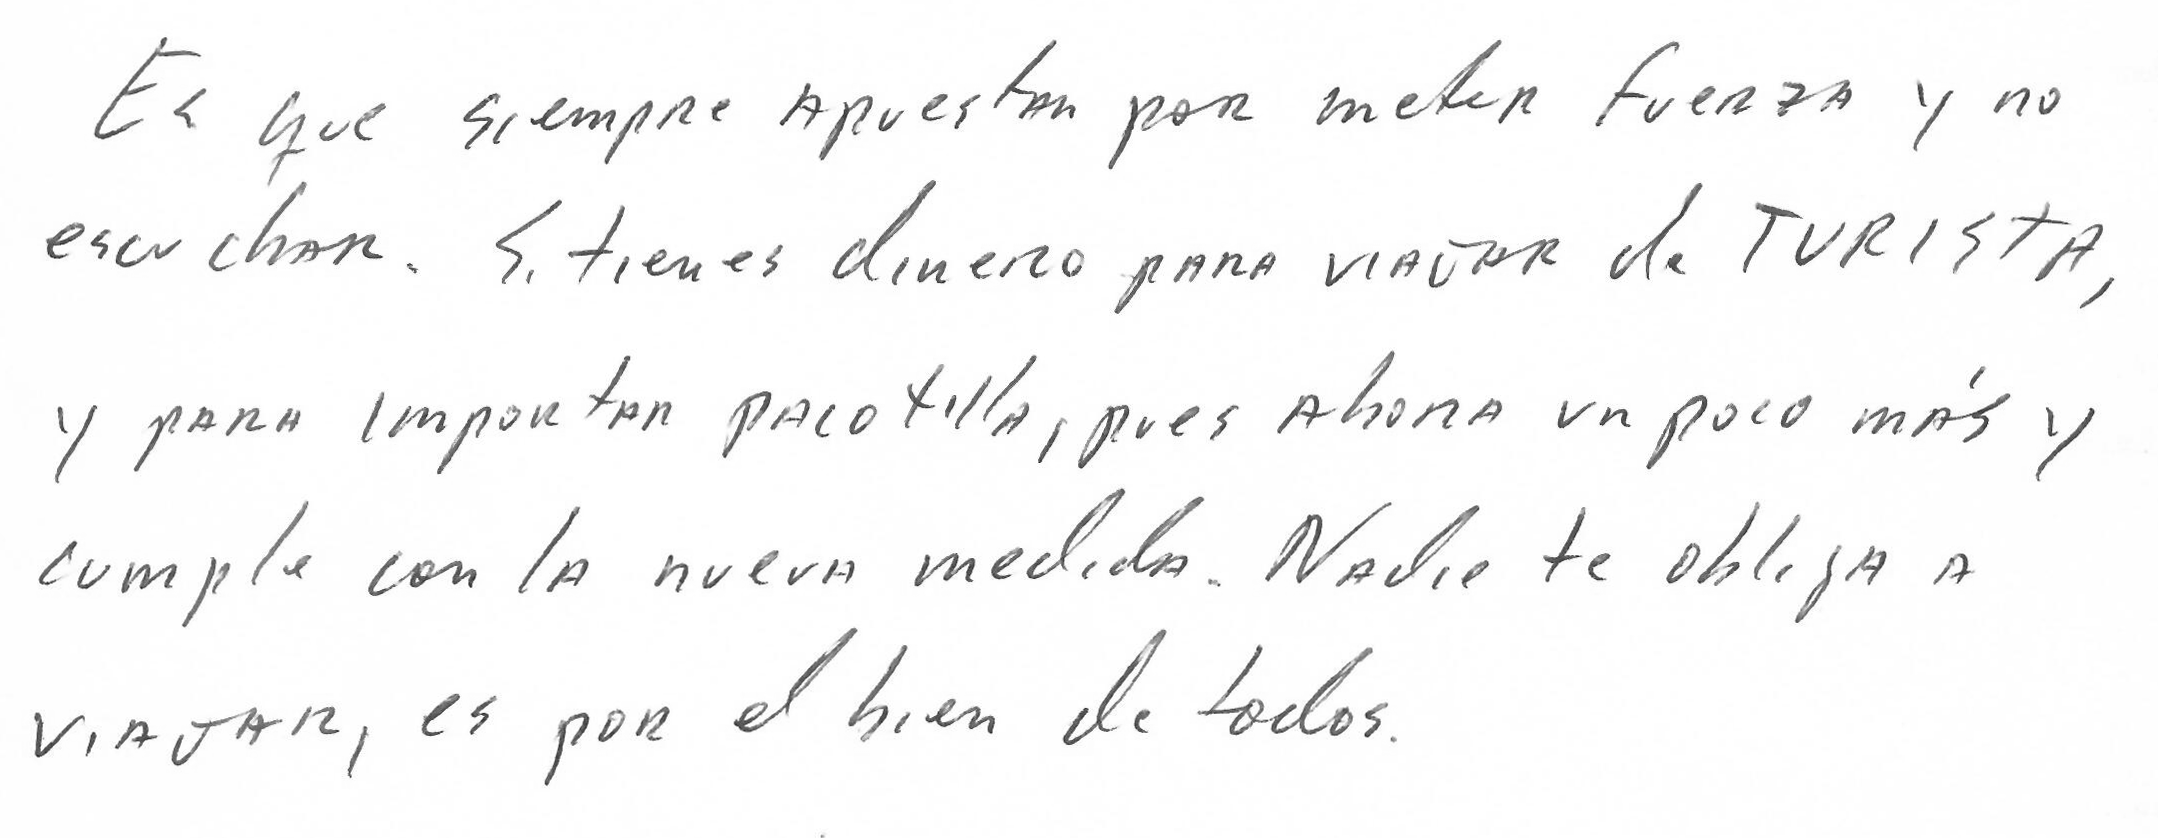 Es que siempre apuestan por meter fuerza y no
escuchar. Si tienes dinero para viajar de TURISTA,
y para importar pacotilla, pues ahora un poco más y
cumple con la nueva medida. Nadie te obliga a
viajar, es por el bien de todos.